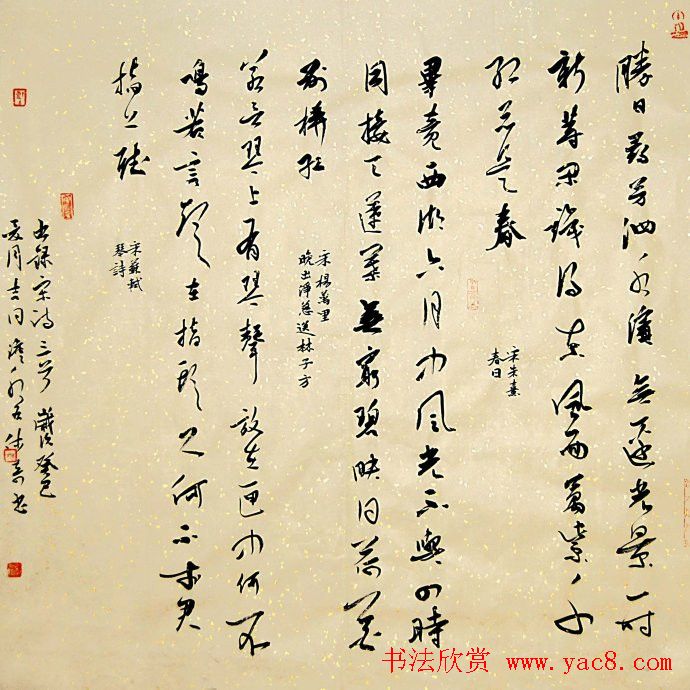 勝日尋芳泗水濱無邊光景一時
新等閑識得東風面萬紫千
紅總是春
宋朱熹
春日
畢竟西湖六月中風光不與四時
同接天蓮葉無窮碧映日荷花
別樣紅
宋楊萬里
晚出淨慈送林子方
若言琴上有琴聲放在匣中何不
鳴若言聲在指頭上何不於君
指上聽
宋蘇軾
琴詩
錄宋詩三首歲次癸巳
夏月吉日
书法欣赏 www.yac8.com